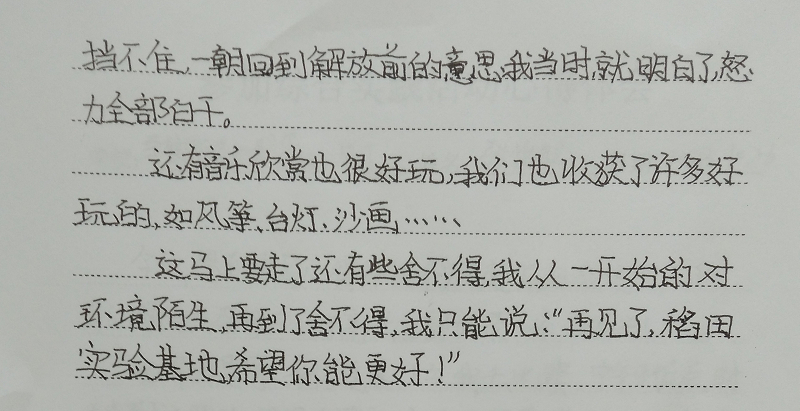 挡不住,一朝回到解放前的意思,我当时就明白了,怒
力全部白干。
还有音乐欣赏也很好玩,我们也收获了许多好
玩的,如风筝、台灯、沙画……
这马上要走了还有些舍不得,我从一开始的对
环境陌生,再到了舍不得,我只能说:“再见了,稻田
实验基地,希望你能更好!”